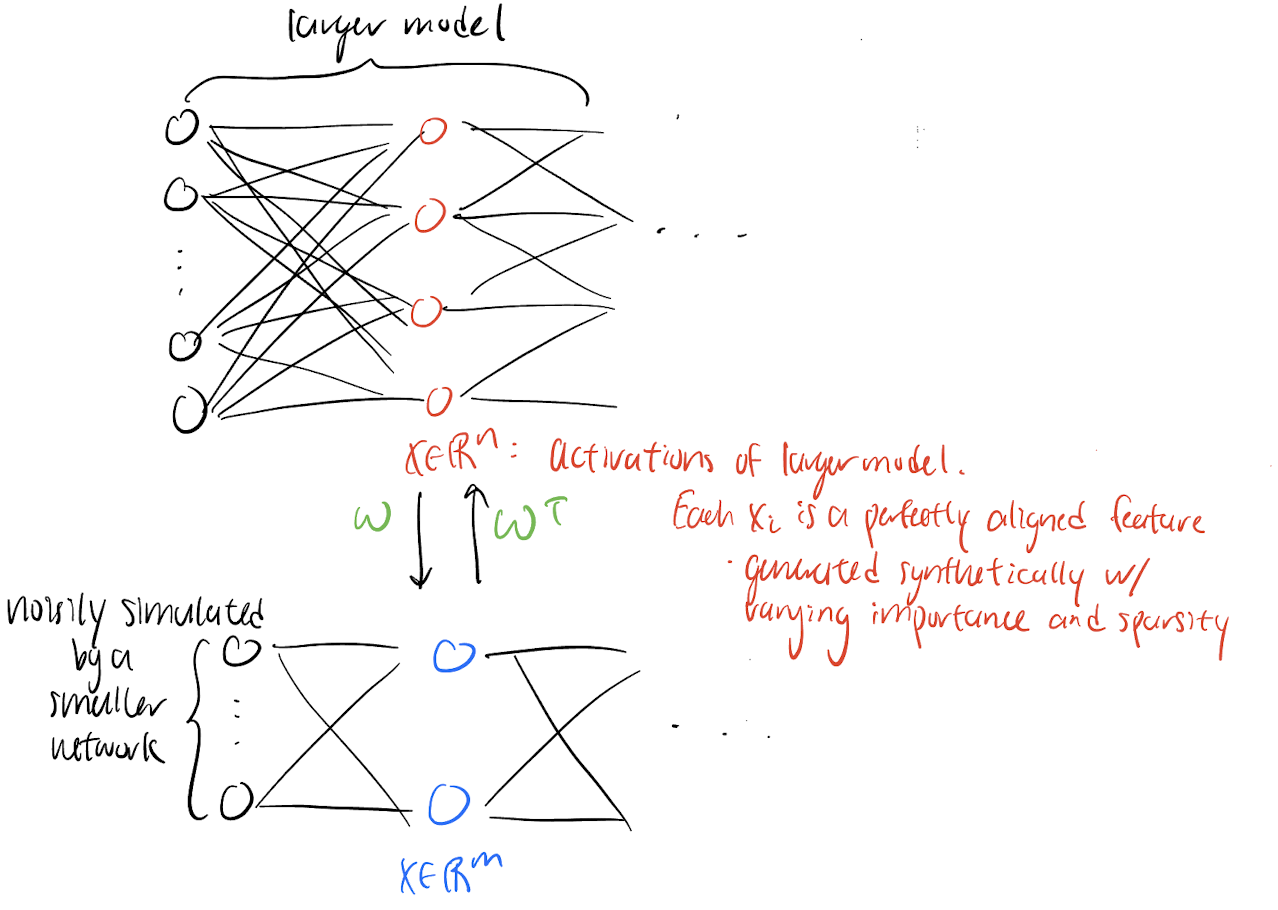 larger model
x∈ℝⁿ: activations of larger model.
W
Wᵀ
Each xᵢ is a perfectly aligned feature
· generated synthetically w/
varying importance and sparsity
noisily simulated
by a
smaller
network
x∈ℝᵐ